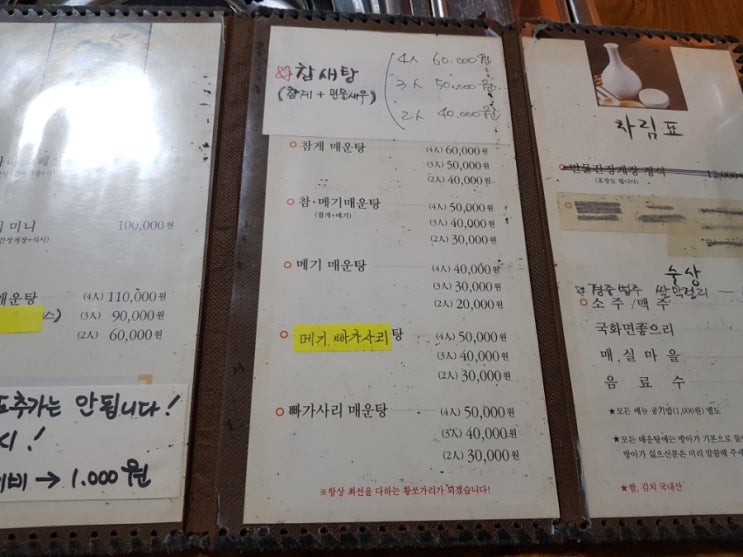 미니 100,000원
간장게장+식사)
매운탕 (4人) 110,000원
(3人) 90,000원
(2人) 60,000원
추가는 안됩니다!
시!
비 → 1.000원
참새탕
(참게 + 민물새우)
4人 60.000원
3人 50.000원
2人 40.000원
참게 매운탕 (4人) 60,000원
(3人) 50,000원
(2人) 40,000원
참·메기매운탕 (4人) 50,000원
(참게+메기) (3人) 40,000원
(2人) 30,000원
메기 매운탕 (4人) 40,000원
(3人) 30,000원
(2人) 20,000원
메기 빠가사리탕 (4人) 50,000원
(3人) 40,000원
(2人) 30,000원
빠가사리 매운탕 (4人) 50,000원
(3人) 40,000원
(2人) 30,000원
※항상 최선을 다하는 황쏘가리가 되겠습니다!
차림표
민물간장게장 정식 12,000
(포장도 됩니다)
경주법주 쌀막걸리
소주/맥주
국화면좋으리
매.실마을
음료수
★모든 메뉴 공기밥(1,000원) 별도
★모든 매운탕에는 방아가 기본으로 들
방아가 싫으신분은 미리 말씀해 주세
★쌀, 김치 국내산